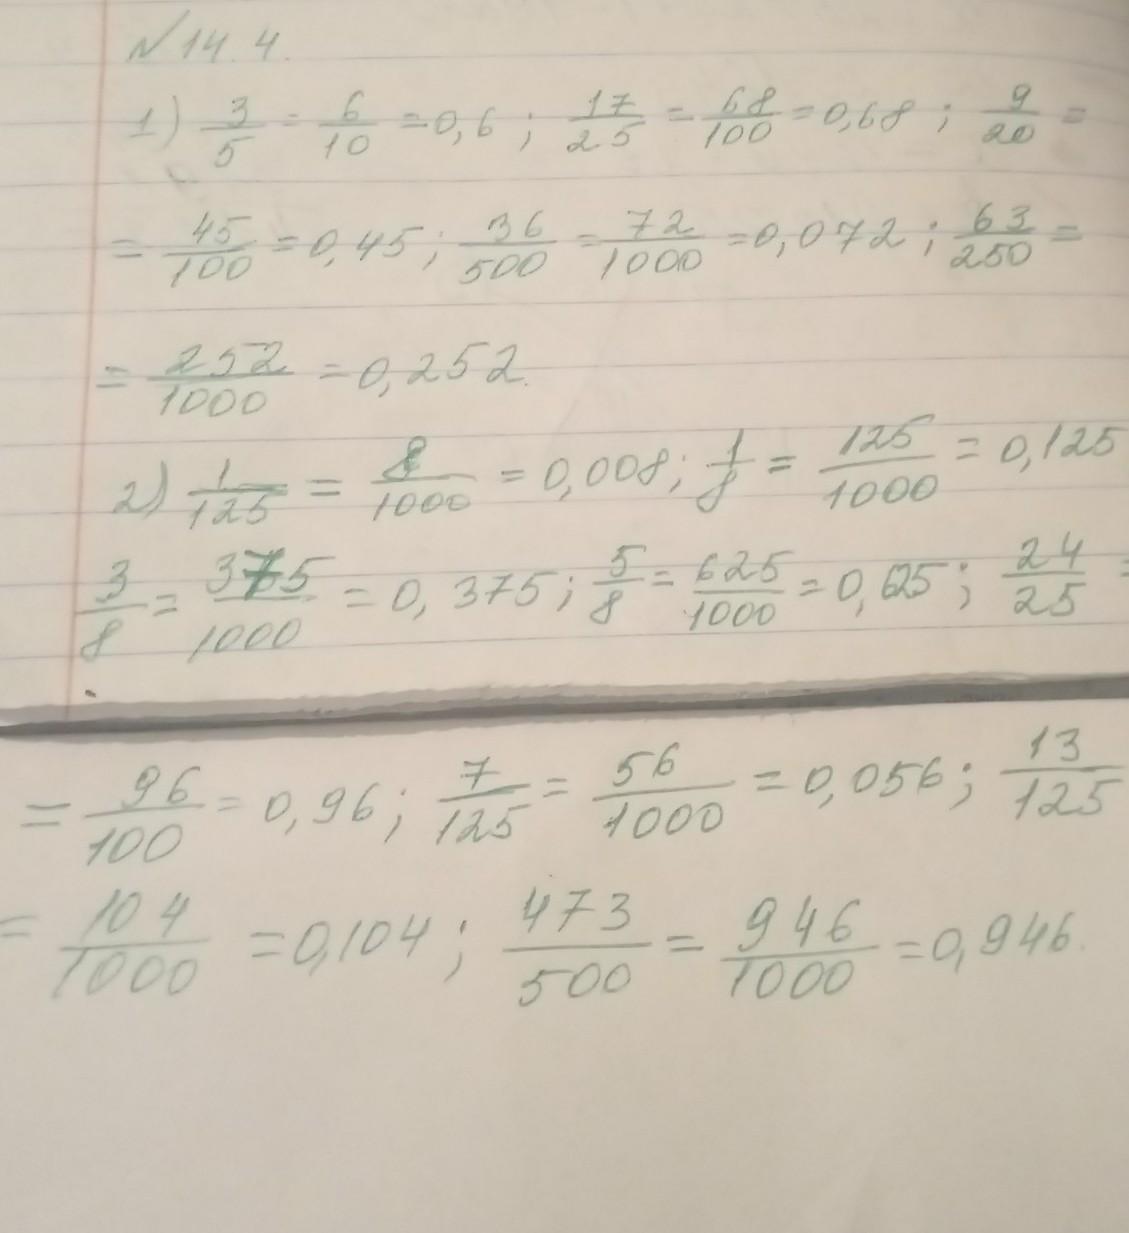 N 14.4.
1) 3/5 = 6/10 = 0,6 ; 17/25 = 68/100 = 0,68 ; 9/20 =
= 45/100 = 0,45 ; 36/500 = 72/1000 = 0,072 ; 63/250 =
= 252/1000 = 0,252.
2) 1/125 = 8/1000 = 0,008 ; 1/8 = 125/1000 = 0,125
3/8 = 375/1000 = 0,375 ; 5/8 = 625/1000 = 0,625 ; 24/25 =
= 96/100 = 0,96 ; 7/125 = 56/1000 = 0,056 ; 13/125
= 104/1000 = 0,104 ; 473/500 = 946/1000 = 0,946.